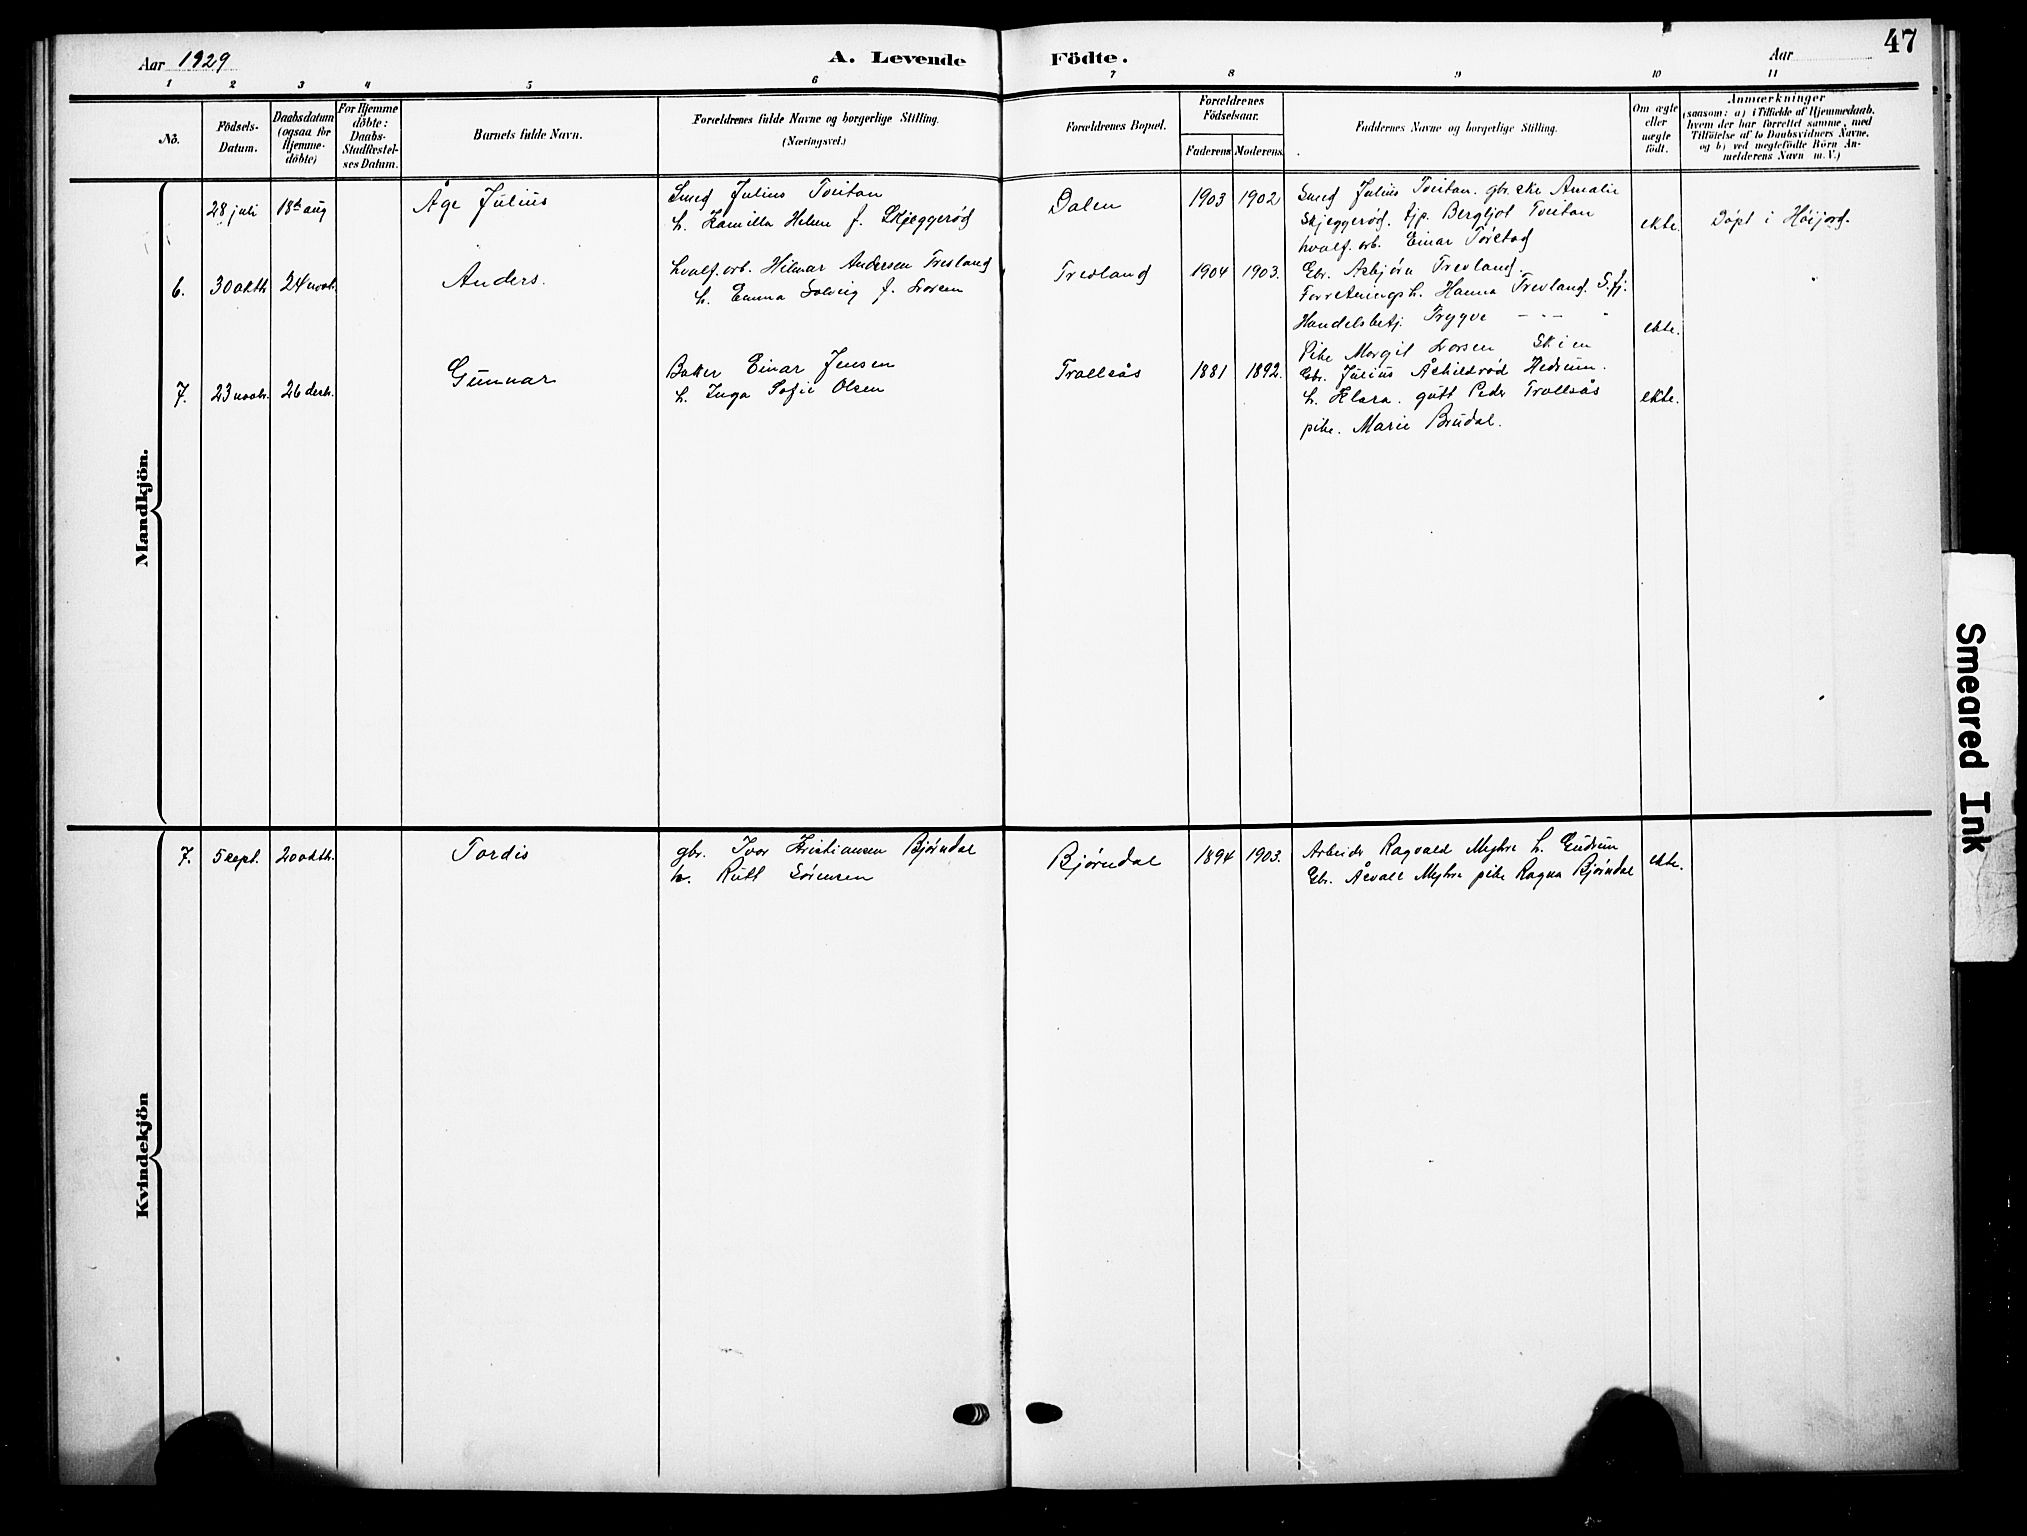 Aar 1929
A. Levende
Födte.
Aar
47
1 2 3 4 5 6 7 8 9 10 11
No.
Födsels-
Datum.
Daabsdatum
(ogsaa for
Hjemme-
döbte)
For Hjemme
döbte:
Daabs-
Stadfæstel-
ses Datum.
Barnets fulde Navn.
Forældrenes fulde Navne og borgerlige Stilling.
(Næringsvei.)
Forældrenes Bopæl.
Forældrenes
Födselsaar.
Faderens Moderens
Faddernes Navne og borgerlige Stilling.
Om ægte
eller
uægte
födt.
Anmærkninger
(saasom: a) i Tilfælde af Hjemmedaab,
hvem der har forrettet samme, med
Tilföielse af to Daabsvidners Navne,
og b) ved uegtefödte Börn An-
melderens Navn m. V.)
Mandkjön.
28 juli 18de aug Åge Julius
Smed Julius Tveitan
h. Kamilla Helene f. Skjeggerød
Dalen 1903 1902
Smed Julius Tveitan. gbr. Amalie
Skjeggerød. tjp. Bergljot Tveitan
hvalf. arb. Einar
ekte. Døpt i Høijord.
6. 30 oktb. 24 novb. Anders.
hvalf. arb. Hilmar Andersen Trevland
h. Emma Solveig f. Larsen
Trevland 1904 1903.
Gbr. Asbjørn Trevland.
Forretningsh. Hanna Trevland. S.fj.
Handelsbetj. Trygve - - -
Pike Margit Larsen Skien
ekte.
7. 23 novb. 26 desb. Gunnar
Baker Einar Jensen
h. Inga Sofie Olsen
Trollsås 1881 1892.
Gbr. Julius Åshildrød Hedrum.
h. Klara. gutt Peder Trollsås
pike. Marie Brudal.
ekte.
Kvindekjön
7. 5 sept. 20 oktb. Tordis
gbr. Ivar Kristiansen Bjørndal
h. Rutt Sørensen
Bjørndal 1894 1903.
Arbeider Ragvald Myhre h. Gudrun
Gbr. Åsvall Myhre pike Ragna Bjørndal
ekte.
Smeared Ink